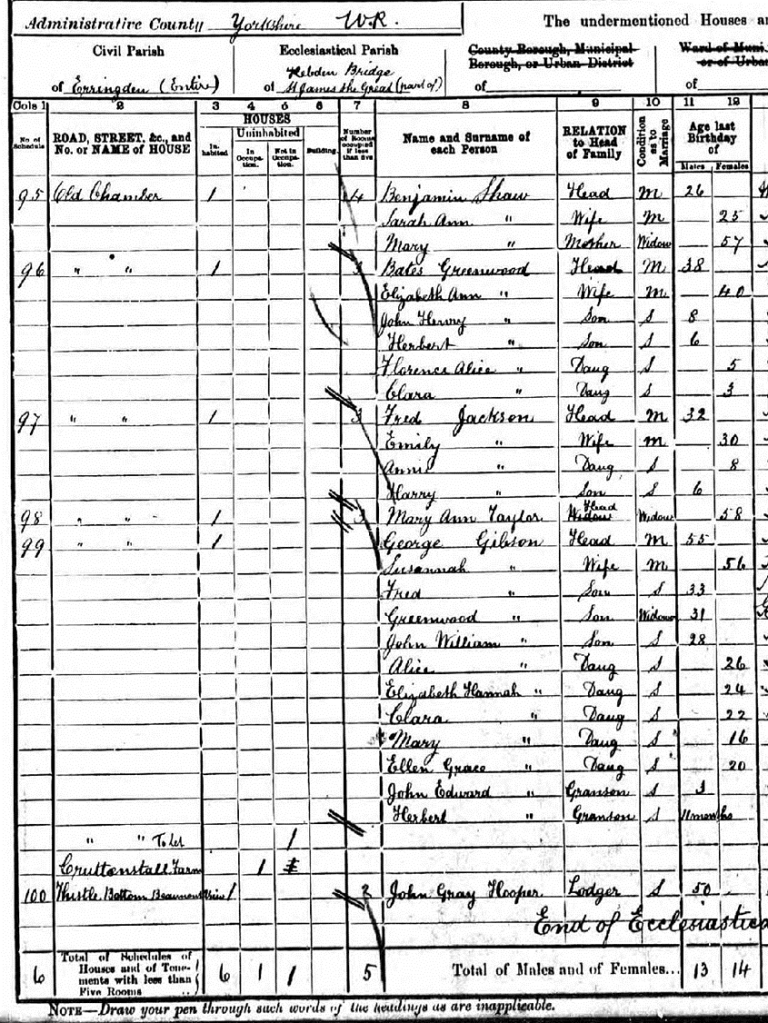 Administrative County Yorkshire W.R. The undermentioned Houses
Civil Parish
of Erringden (Entire)
Ecclesiastical Parish
Hebden Bridge
of St James the Great (part of)
County Borough, Municipal
Borough, or Urban District
of
Ward of Muni
or of Urba
of
Cols 1 2 3 4 5 6 7 8 9 10 11 12
No. of Schedule
ROAD, STREET, &c., and No. or NAME of HOUSE
HOUSES
In-habited
Uninhabited
In Occupa-tion.
Not in Occupa-tion.
Building.
Number of Rooms occupied if less than five
Name and Surname of each Person
RELATION to Head of Family
Condition as to Marriage
Age last Birthday of
Males Females
95 Old Chamber 1 4 Benjamin Shaw Head M 26
Sarah Ann " Wife M 25
Mary " Mother Widow 57
96 " " 1 3 Bates Greenwood Head M 38
Elizabeth Ann " Wife M 40
John Henry " Son S 8
Herbert " Son S 6
Florence Alice " Daug S 5
Clara " Daug S 3
97 " " 1 3 Fred Jackson Head M 32
Emily " Wife M 30
Annie " Daug S 8
Harry " Son S 6
98 " " 1 3 Mary Ann Taylor Widow Head Widow 58
99 " " 1 George Gibson Head M 55
Susannah " Wife M 56
Fred " Son S 33
Greenwood " Son Widow 31
John William " Son S 28
Alice " Daug S 26
Elizabeth Hannah " Daug S 24
Clara " Daug S 22
Mary " Daug S 16
Ellen Grace " Daug S 20
John Edward " Granson S 3
Herbert " Granson S 11 months
" " To Let 1
Cruttonstall Farm 1
100 Thistle Bottom Beaumont 1 2 John Gray Hooper Lodger S 50
End of Ecclesiastica
6 Total of Schedules of Houses and of Tene-ments with less than Five Rooms 6 1 1 5 Total of Males and of Females... 13 14
NOTE—Draw your pen through such words of the headings as are inapplicable.